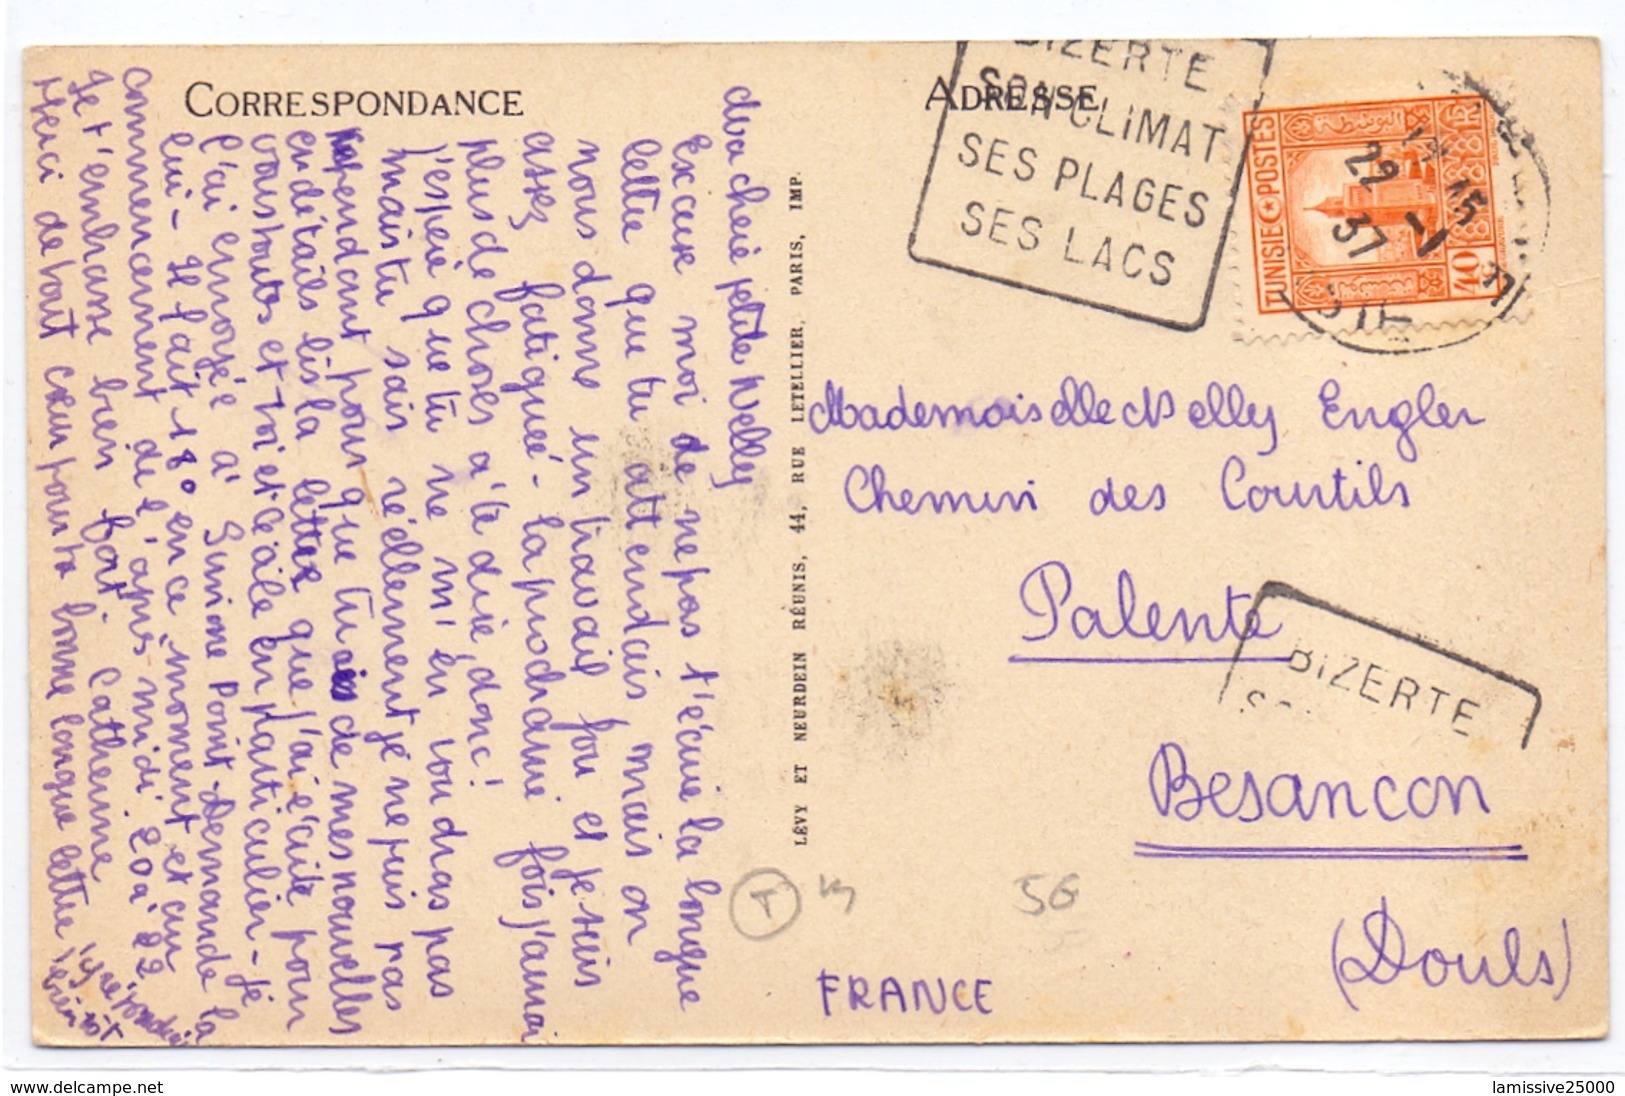 CORRESPONDANCE
Ma chérie petite Nelly
Excuse moi de ne pas t'écrire la longue
lettre que tu attendais mais on
nous donne un travail fou et je suis
assez fatiguée - la prochaine fois j'aurai
plus de choses à te dire, donc!
j'espère que tu ne m'en voudras pas
mais tu sais réellement je ne puis pas
cependant pour que tu aies de mes nouvelles
en détails lis la lettre que j'ai écrite pour
vous toutes et toi et Cécile en particulier - je
l'ai envoyé à Simone Point. Demande la
lui - Il fait 18° en ce moment et au
commencement de l'après midi 20 à 22°
Je t'embrasse bien fort. Catherine
Merci de tout cœur pour ta bonne longue lettre j'y répondrai
bientôt
LÉVY ET NEURDEIN RÉUNIS, 44, RUE LETELLIER, PARIS, IMP.
ADRESSE
BIZERTE
SON CLIMAT
SES PLAGES
SES LACS
TUNISIE POSTES
40
15
29 -1
37
Mademoiselle Nelly Engler
Chemin des Courtils
Palente
BIZERTE
Besançon
(Doubs)
FRANCE
T
56
www.delcampe.net
lamissive25000